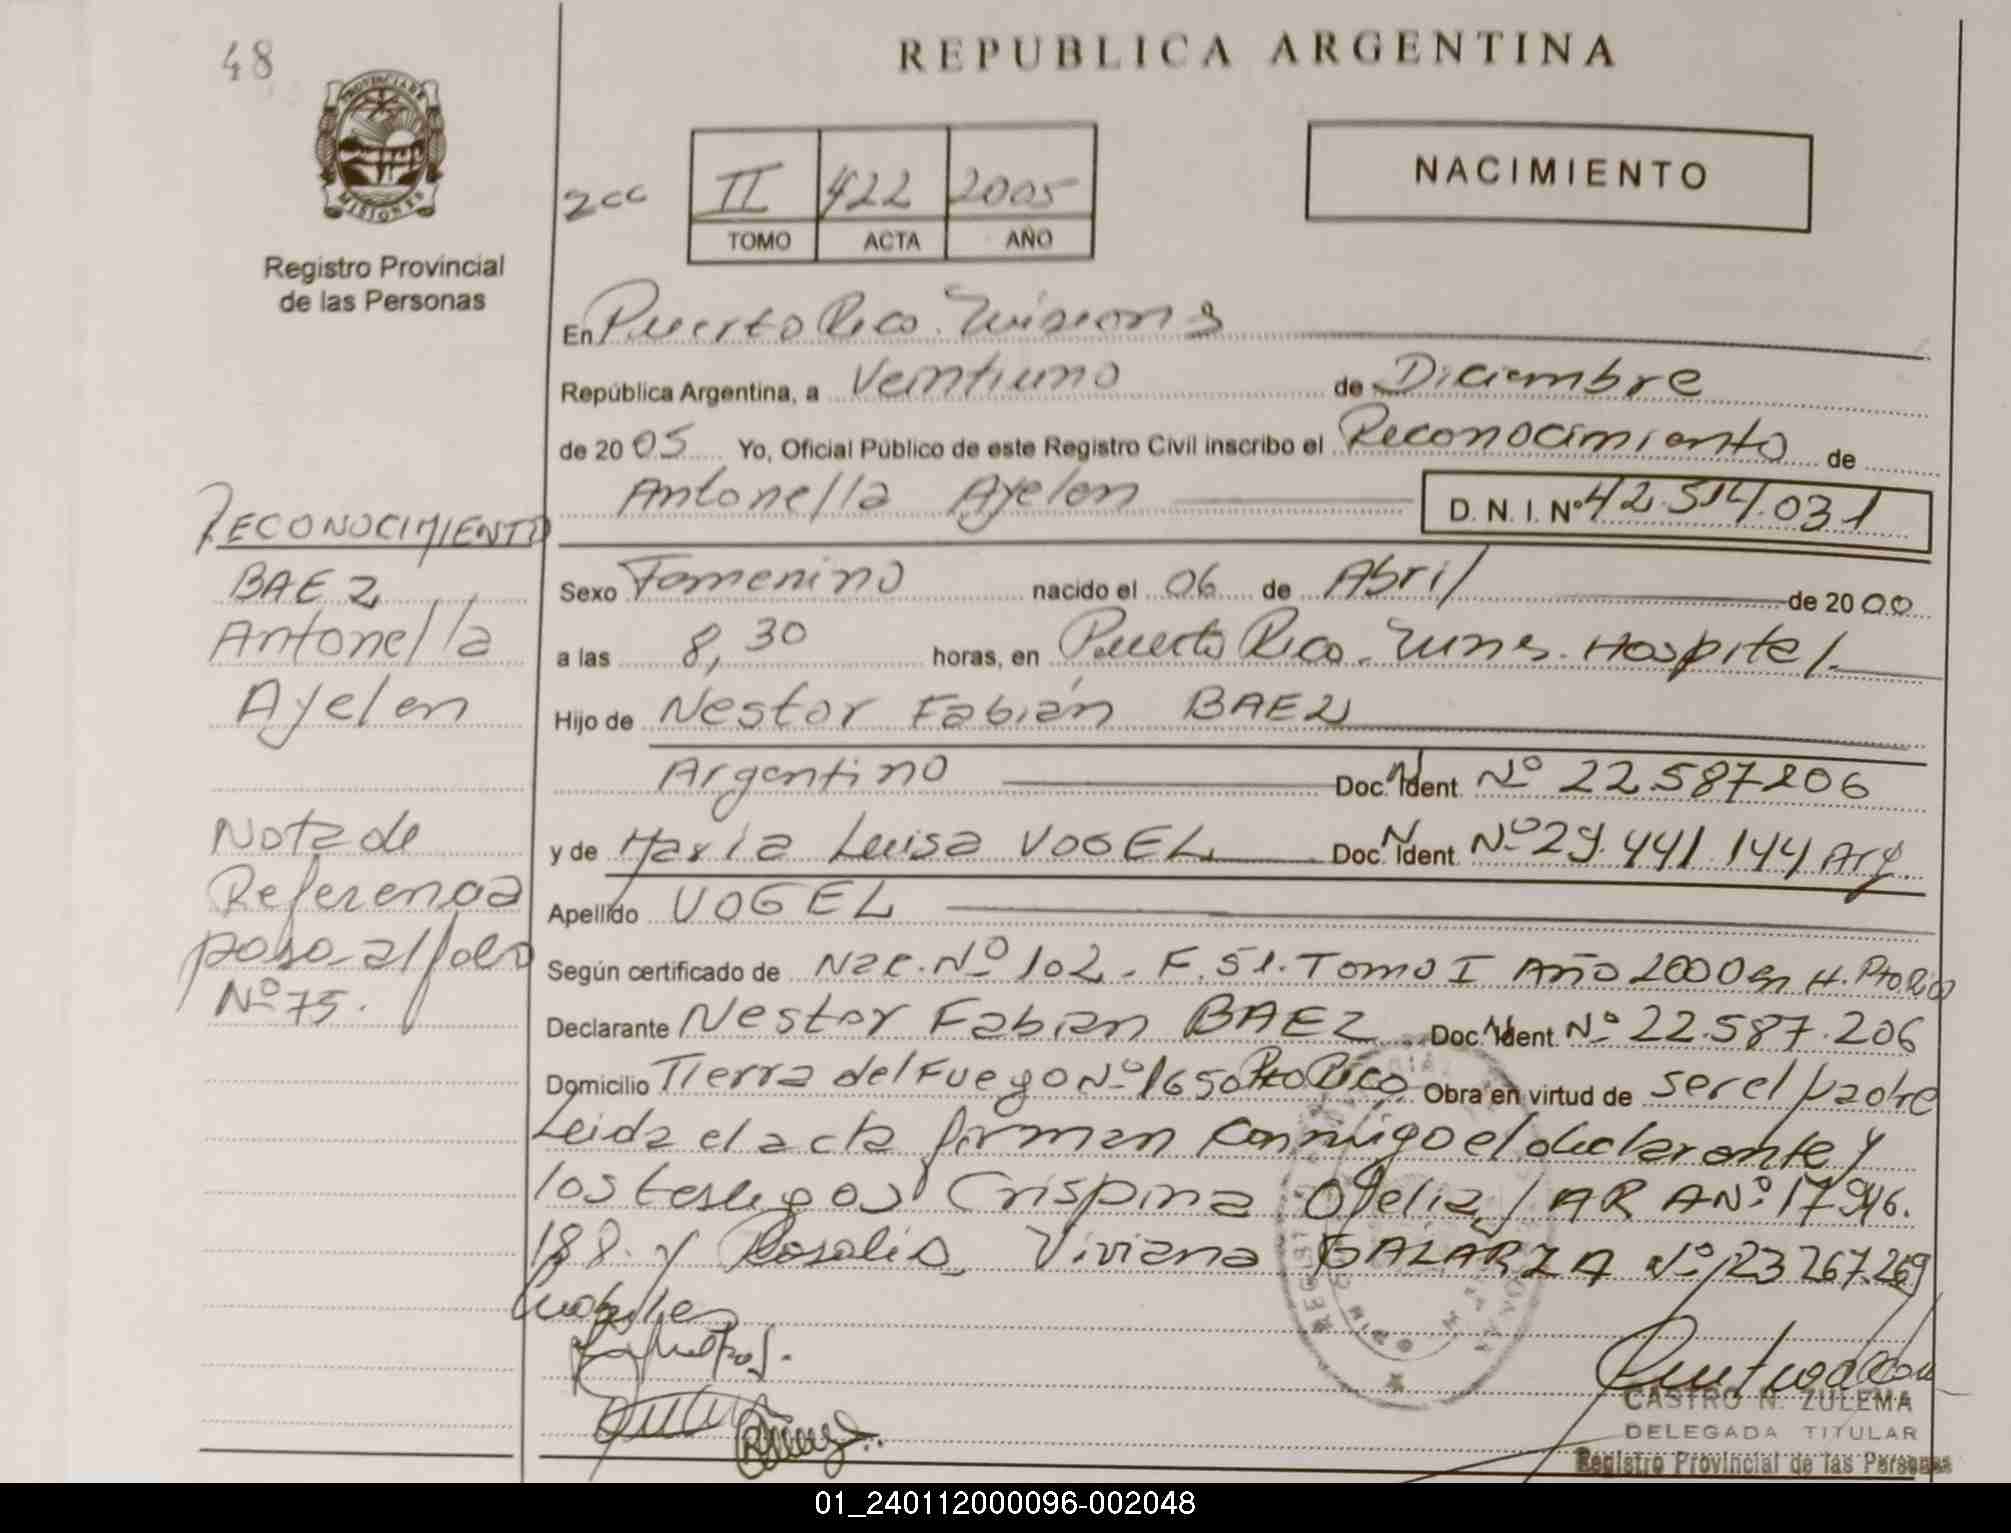 48
REPUBLICA ARGENTINA
PROVINCIA DE
MISIONES
Registro Provincial
de las Personas
NACIMIENTO
2cc
II 422 2005
TOMO ACTA AÑO
En Puerto Rico. Misiones
República Argentina, a Veintiuno de Diciembre
de 2005 Yo, Oficial Público de este Registro Civil inscribo el Reconocimiento de
Antonella Ayelen D.N.I. Nº 42.514.031
Sexo Femenino nacido el 06 de Abril de 2000
a las 8,30 horas, en Puerto Rico. Mnes. Hospital.
Hijo de Nestor Fabián BAEZ
Argentino Doc. N Ident. Nº 22.587206
y de María Luisa VOGEL Doc. N Ident. Nº 29.441.144 Arg.
Apellido VOGEL
Según certificado de Nac. Nº 102. F. 51. Tomo I Año 2000 en H. Pto Rico
Declarante Nestor Fabian BAEZ Doc. N Ident. Nº 22.587.206
Domicilio Tierra del Fuego Nº 1650 Pto Rico Obra en virtud de ser el padre
Leida el acta firman conmigo el declarante y
los testigos Crispina Ofelia JARA Nº 17.946.
188. y Rosalia Viviana GALARZA Nº 23267.269
RECONOCIMIENTO
BAEZ
Antonella
Ayelen
Nota de
Referencia
paso al folio
Nº 75.
CASTRO N. ZULEMA
DELEGADA TITULAR
Registro Provincial de las Personas
01_240112000096-002048